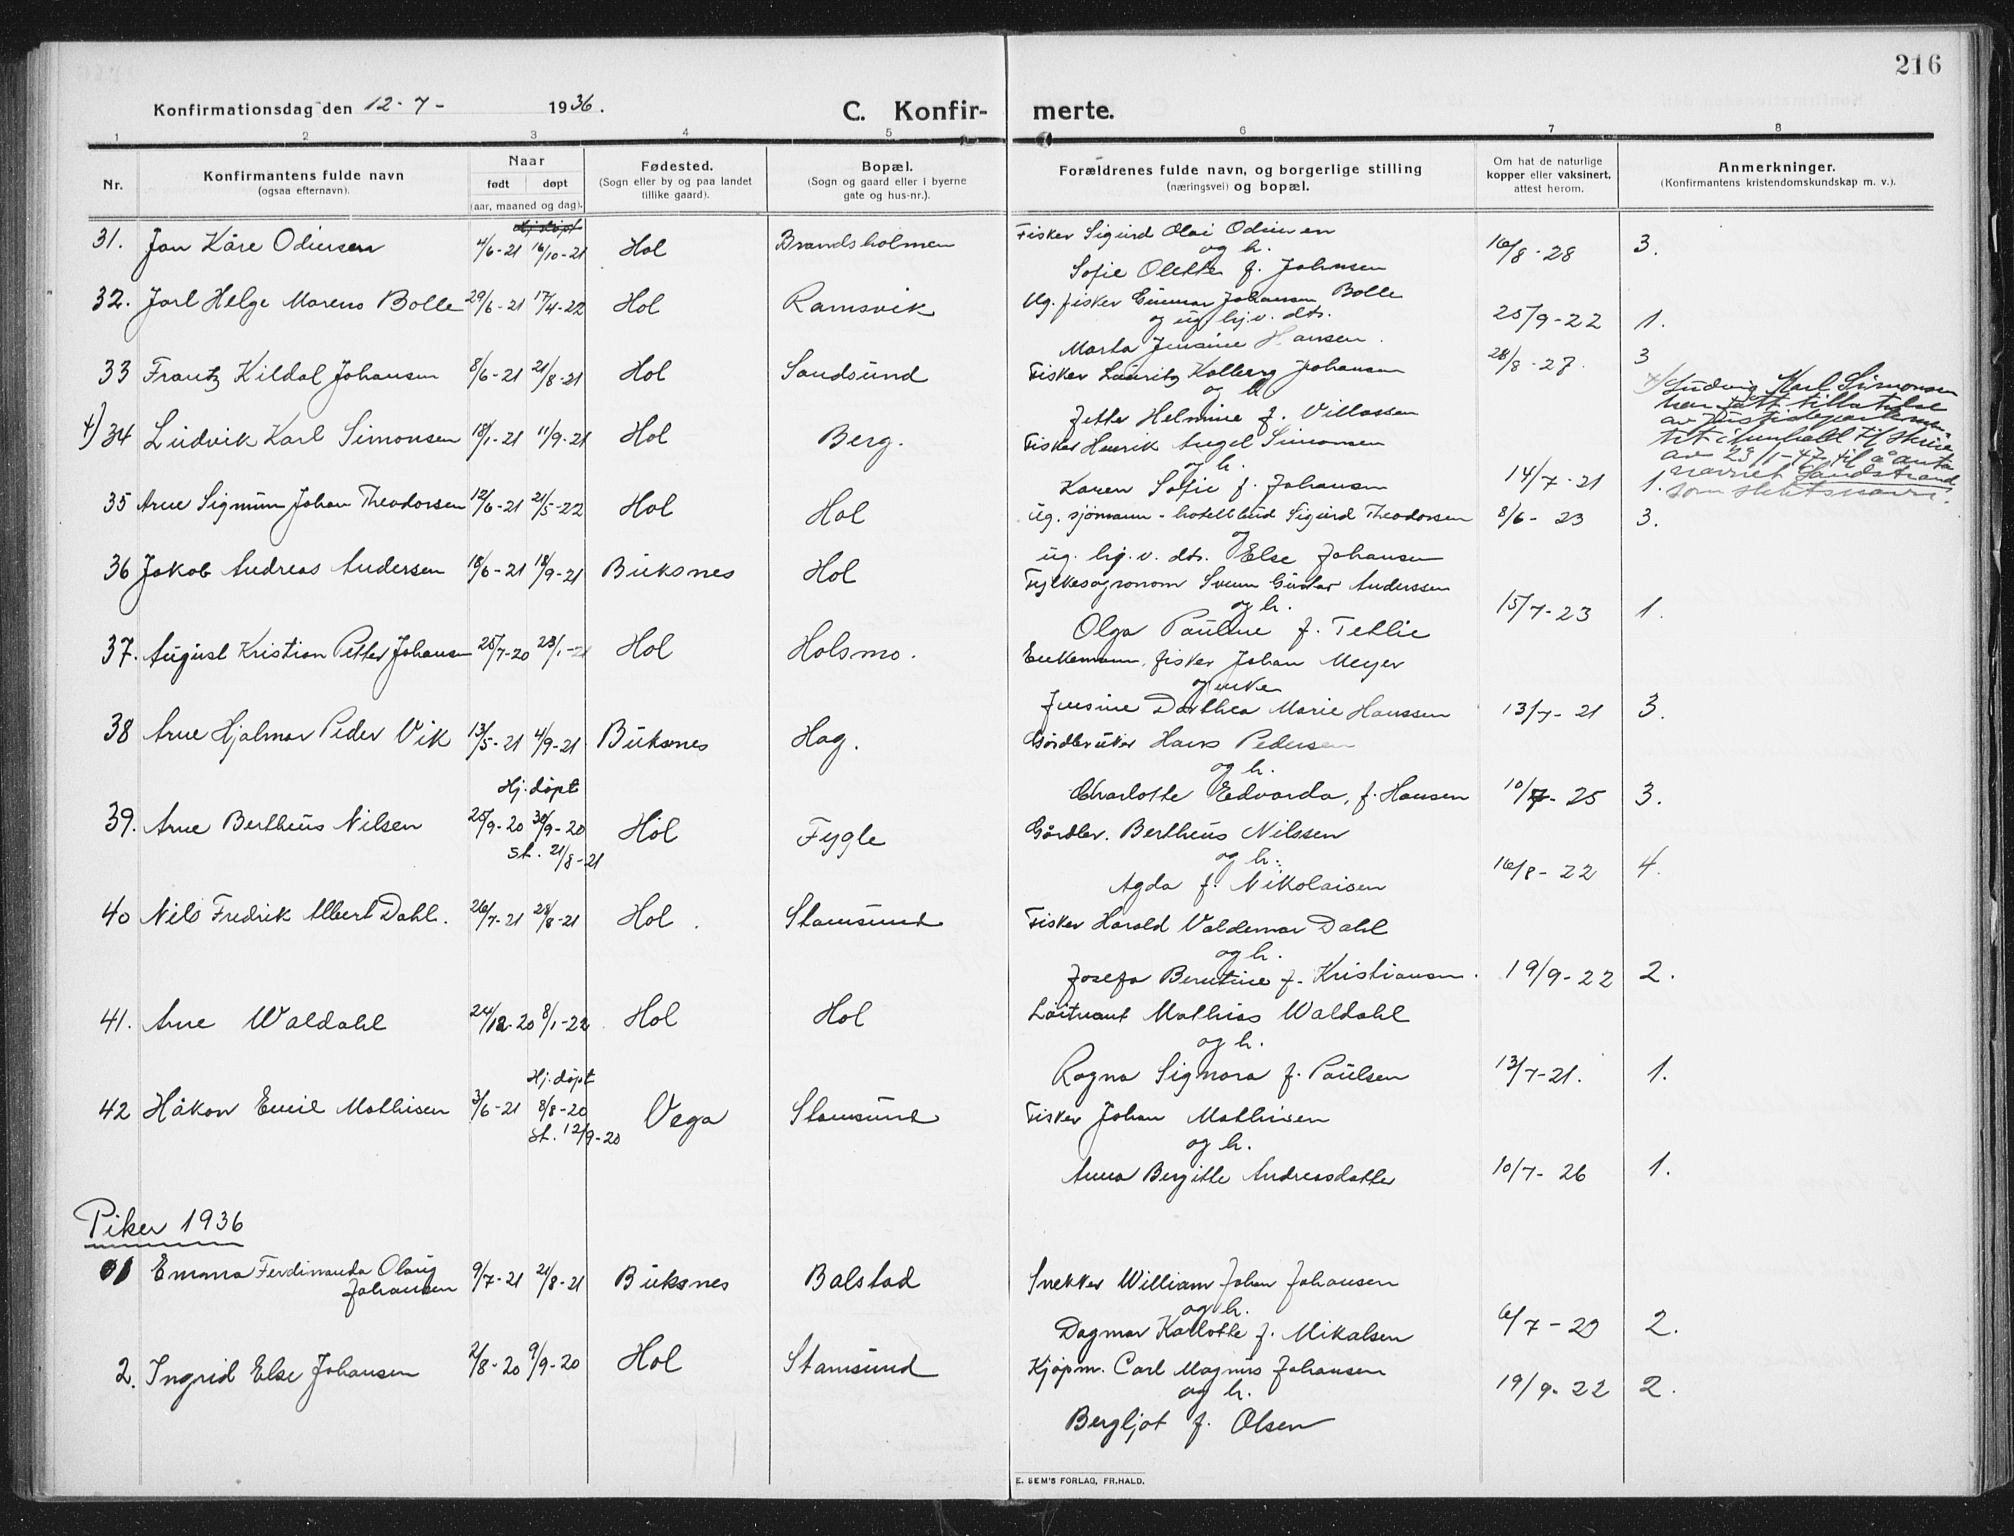 216
Konfirmationsdag den 12-7- 1936. C. Konfir- merte.
1 2 3 4 5 6 7 8
Nr. Konfirmantens fulde navn (ogsaa efternavn). Naar født døpt (aar, maaned og dag). Fødested. (Sogn eller by og paa landet tillike gaard). Bopæl. (Sogn og gaard eller i byerne gate og hus-nr.). Forældrenes fulde navn, og borgerlige stilling (næringsvei) og bopæl. Om hat de naturlige kopper eller vaksinert, attest herom. Anmerkninger. (Konfirmantens kristendomskundskap m. v.).
Hj. døpt
31. Jan Kåre Odinsen 4/6-21 16/10-21 Hol Brandsholmen Fisker Sigurd Olai Odinsen
og h.
Sofie Olette f. Johnsen 16/8-28 3.
32. Jarl Helge Marens Bolle 29/6-21 17/4-22 Hol Ramsvik Ug. fisker Gunnar Johansen Bolle
og ug. hj.v. dtr.
Marta Jensine Hansen. 25/9-22 1.
33 Frantz Kildal Johansen 8/6-21 21/8-21 Hol Sandsund Fisker Lauritz Kolberg Johansen 28/8-27. 3
og h.
Jette Helmine f. Villassen
x) 34 Ludvik Karl Simonsen 18/1-21 11/9-21 Hol Berg. Fisker Henrik Angel Simonsen
og h.
Karen Sofie f. Johansen 14/7-21 1.
x) Ludvig Karl Simonsen
har fått tillatelse
av Justisdepartemen-
tet i henhold til skriv
av 23/1-47 til å anta
navnet Sandstrand
som slektsnavn.
35 Arne Sigmun Johan Theodorsen 12/6-21 21/5-22 Hol Hol Ug. sjømann - hotellbud Sigurd Theodorsen 8/6-23 3.
og
ug. hj.v. dtr. Else Johansen
36 Jakob Andreas Andersen 18/6-21 18/9-21 Buksnes Hol Fylkesagronom Svenn Gustav Anderssen
og h.
Olga Pauline f. Tetlie 15/7-23 1.
37. August Kristian Petter Johansen 25/7-20 23/1-21 Hol Holsmo. Enkemann, fisker Johan Meyer
og enke
Jensine Dorthea Marie Hanssen 13/7-21 3.
38 Arne Hjalmar Peder Vik 13/5-21 4/9-21 Buksnes Hag. Gårdbruker Hans Pedersen
og h.
Charlotte Edvarda, f. Hansen 10/7-25 3.
Hj. døpt
39. Arne Bertheus Nilsen 25/9-20 30/9-20 Hol Fygle Gårdbr. Bertheus Nilssen
st. 21/8-21
og h.
Agda f. Nikolaisen 16/8-22 4.
40 Nils Fredrik Albert Dahl. 26/7-21 28/8-21 Hol. Stamsund Fisker Harald Valdemar Dahl
og h.
Josefa Berntine f. Kristiansen. 19/9-22 2.
41. Arne Waldahl 24/12-20 8/1-22 Hol Hol Løitnant Mathias Waldahl
og h.
Ragna Signora f. Paulsen 13/7-21. 1.
Hj. døpt
42 Håkon Emil Mathisen 3/6-21 8/8-20 Vega Stamsund Fisker Johan Mathisen
st. 12/9-20
og h.
Anna Bergitte Andreasdatter 10/7-26 1.
Piker 1936
1 Emma Ferdinanda Olaug
Johansen 9/7-21 21/8-21 Buksnes Balstad Snekker William Johan Johansen
og h.
Dagmar Karlotte f. Mikalsen 6/7-29 2.
2. Ingrid Else Johansen 2/8-20 9/9-20 Hol Stamsund Kjøpm. Carl Magnus Johansen
og h. 19/9-22 2.
Bergljot f. Olsen
E. SEM'S FORLAG, FR.HALD.